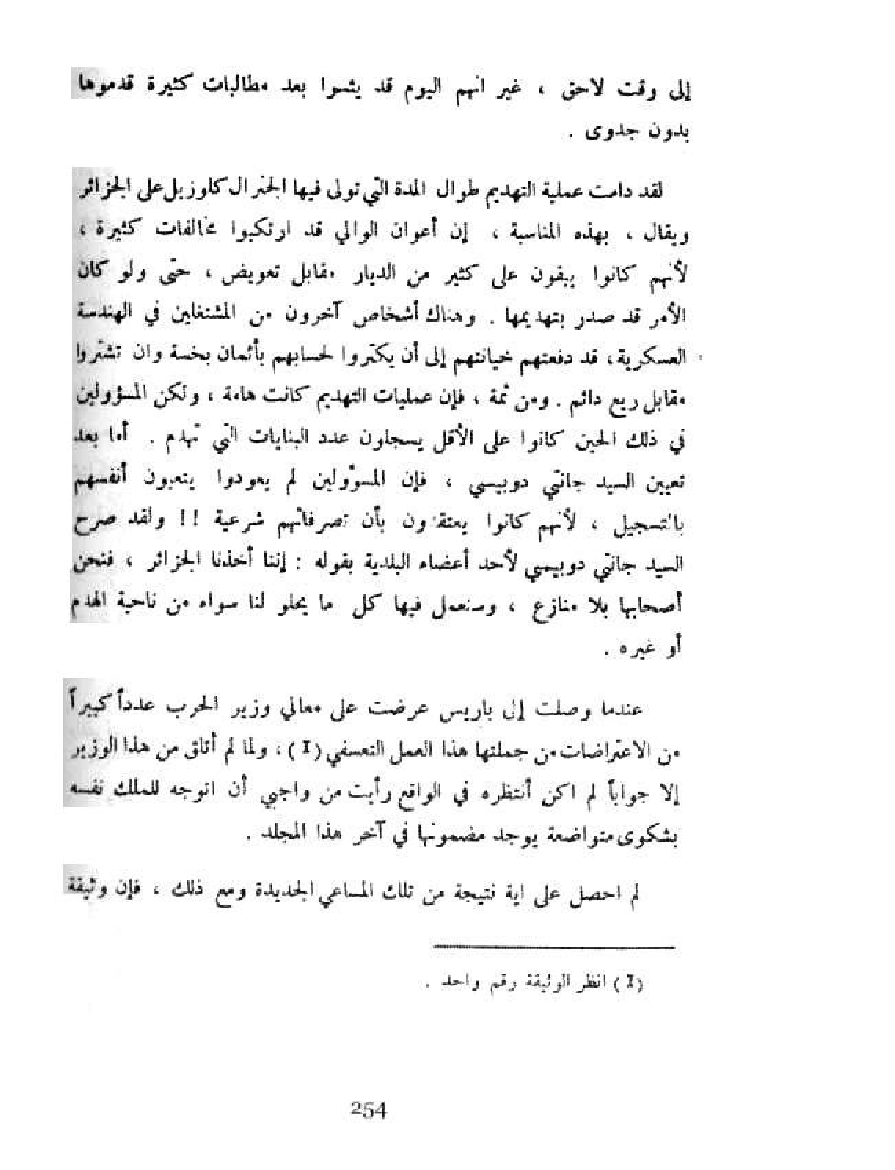 إلى وقت لاحق ، غير انهم اليوم قد يئسوا بعد مطالبات كثيرة قدموها
بدون جدوى .
لقد دامت عملية التهديم طوال المدة التي تولى فيها الجنرال كلوزيل على الجزائر
ويقال ، بهذه المناسبة ، إن أعوان الوالي قد ارتكبوا مخالفات كثيرة ،
لأنهم كانوا يبقون على كثير من الديار مقابل تعويض ، حتى ولو كان
الأمر قد صدر بتهديمها . وهناك أشخاص آخرون من المشتغلين في الهندسة
العسكرية ، قد دفعتهم خيانتهم إلى أن يكتروا لحسابهم بأثمان بخسة وان تشتروا
مقابل ريع دائم . ومن ثمة ، فإن عمليات التهديم كانت هامة ، ولكن المسؤولين
في ذلك الحين كانوا على الأقل يسجلون عدد البنايات التي تهدم . أما بعد
تعيين السيد جانتي دوبيسي ، فإن المسؤولين لم يعودوا يتعبون أنفسهم
بالتسجيل ، لأنهم كانوا يعتقدون بأن تصرفاتهم شرعية !! ولقد صرح
السيد جانتي دوبيسي لأحد أعضاء البلدية بقوله : إننا أخذنا الجزائر ، فنحن
أصحابها بلا منازع ، وسنعمل فيها كل ما يحلو لنا سواء من ناحية الهدم
أو غيره .
عندما وصلت إلى باريس عرضت على معالي وزير الحرب عدداً كبيراً
من الاعتراضات من جملتها هذا العمل التعسفي (I) ، ولما لم أتلق من هذا الوزير
إلا جواباً لم اكن أنتظره في الواقع رأيت من واجبي أن اتوجه للملك نفسه
بشكوى متواضعة يوجد مضمونها في آخر هذا المجلد .
لم احصل على اية نتيجة من تلك المساعي الجديدة ومع ذلك ، فإن وثيقة
(I) انظر الوثيقة رقم واحد .
254